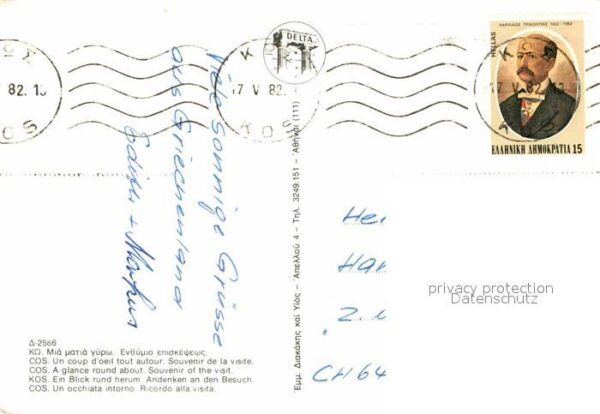 ΚΩΣ
V 82. 1
KOS
DELTA
ΚΩΣ
17 V 82.
KOS
HELLAS
ΧΑΡΙΛΑΟΣ ΤΡΙΚΟΥΠΗΣ 1832 - 1982
17 V 82.
ΕΛΛΗΝΙΚΗ ΔΗΜΟΚΡΑΤΙΑ 15
Viele sonnige Grüsse
aus Griechenland
Edith + Markus
Εμμ. Διακάκης καί Υίός - Άπελλού 4 - Τηλ. 3249.151 - Άθήναι (111)
He
Han
Z.
CH 64
privacy protection
Datenschutz
Δ-2586
ΚΩ. Μιά ματιά γύρω. Ενθύμιο επισκέψεως.
COS. Un coup d'oeil tout autour. Souvenir de la visite.
COS. A glance round about. Souvenir of the visit.
KOS. Ein Blick rund herum. Andenken an den Besuch.
COS. Un occhiata intorno. Ricordo alla visita.